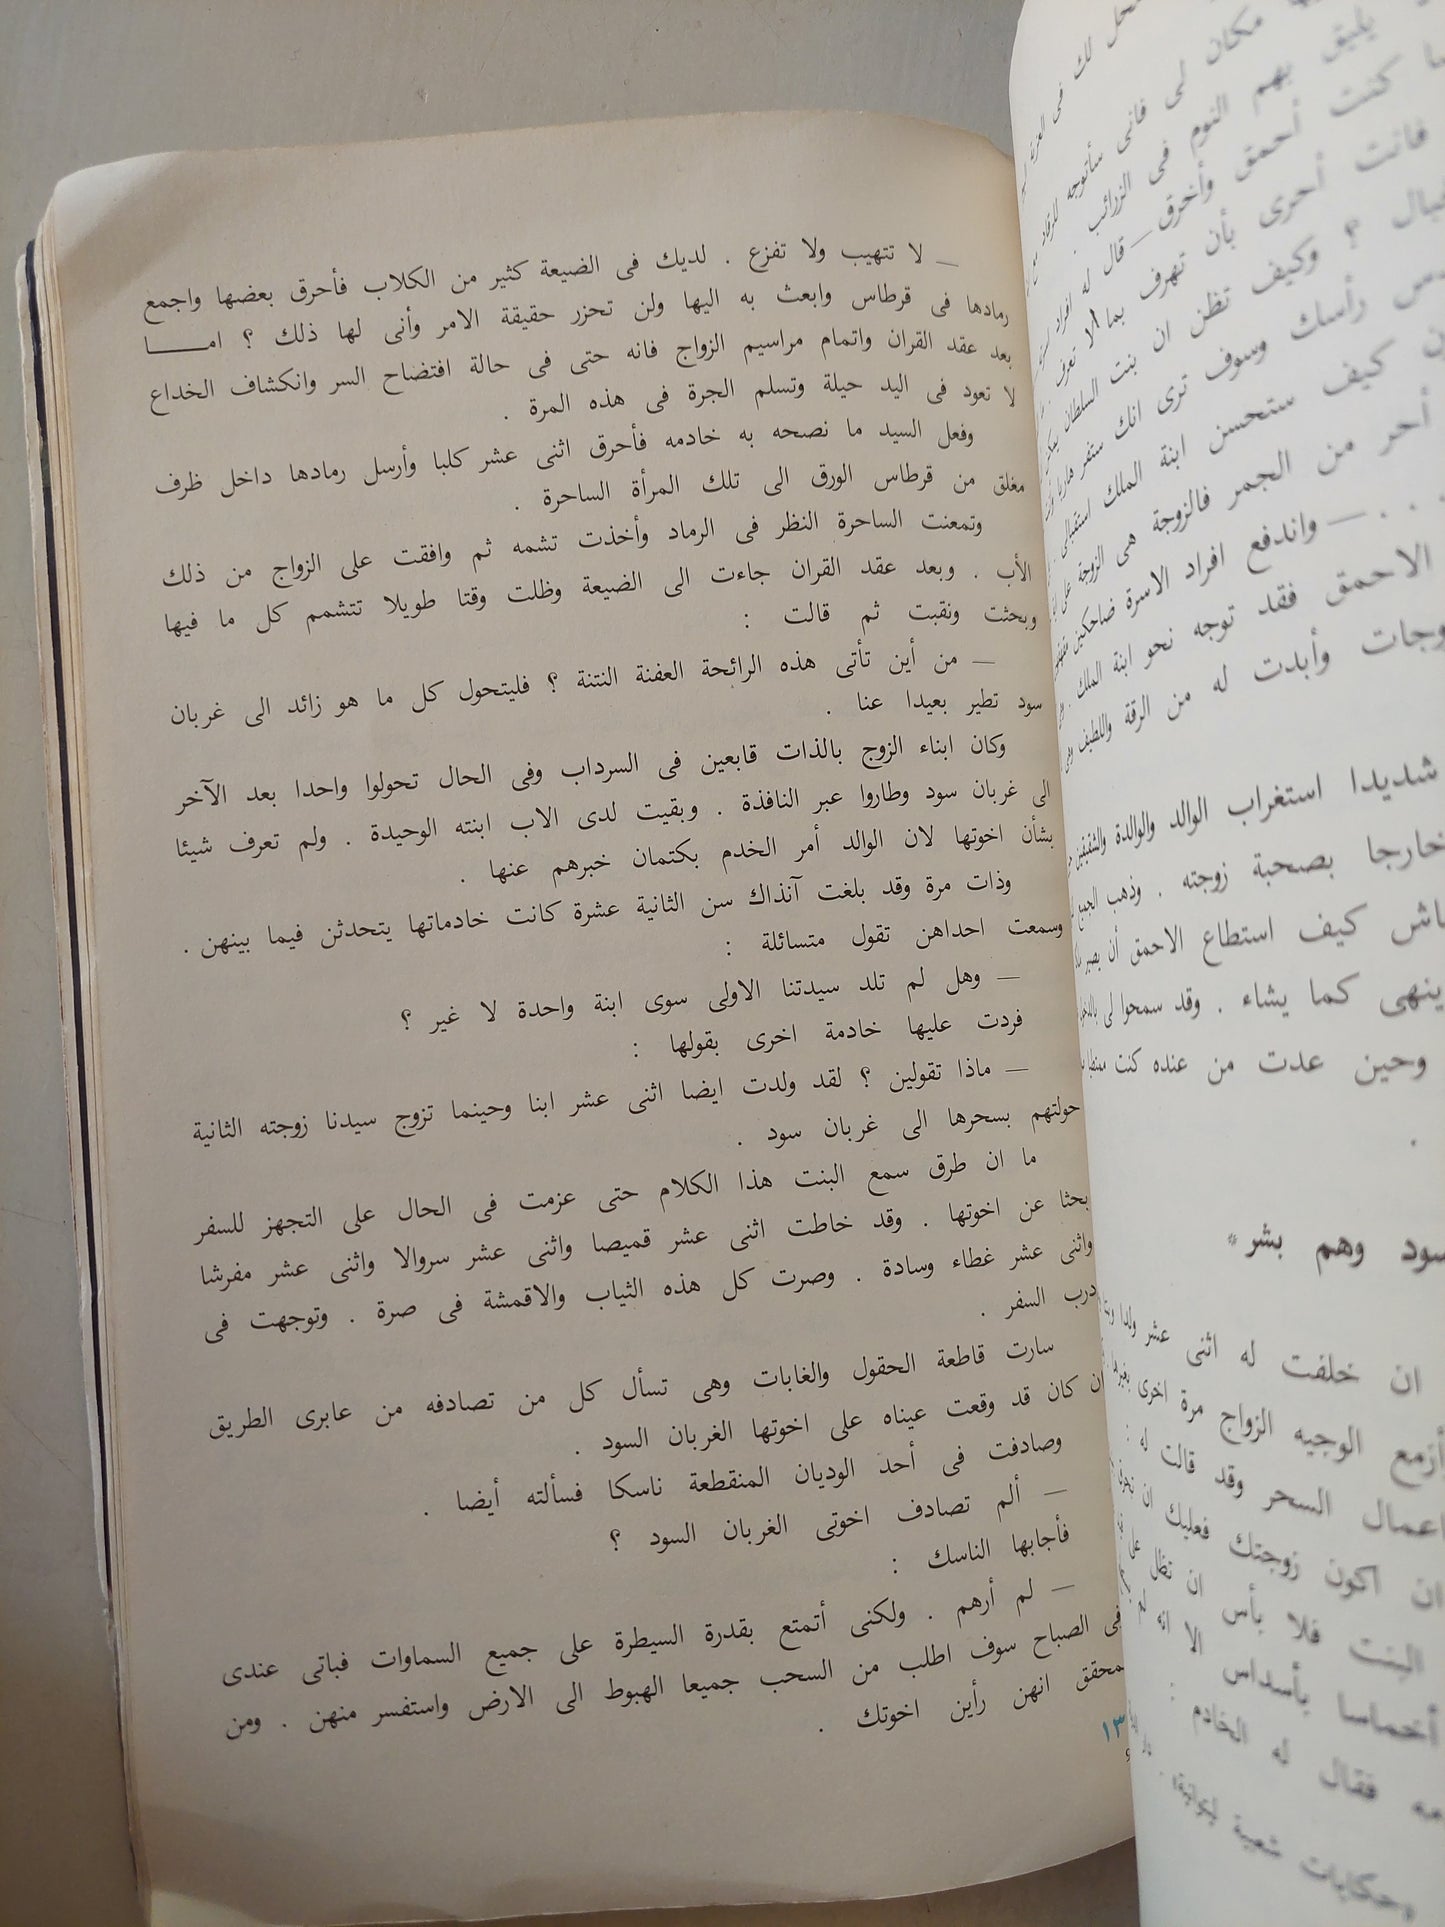 — لا تتهيب ولا تفزع . لديك فى الضيعة كثير من الكلاب فأحرق بعضها واجمع
رمادها فى قرطاس وابعث به اليها ولن تحزر حقيقة الامر وأنى لها ذلك ؟ امـــا
بعد عقد القران واتمام مراسيم الزواج فانه حتى فى حالة افتضاح السر وانكشاف الخداع
لا تعود فى اليد حيلة وتسلم الجرة فى هذه المرة .
وفعل السيد ما نصحه به خادمه فأحرق اثنى عشر كلبا وأرسل رمادها داخل ظرف
مغلق من قرطاس الورق الى تلك المرأة الساحرة .
وتمعنت الساحرة النظر فى الرماد وأخذت تشمه ثم وافقت على الزواج من ذلك
الأب . وبعد عقد القران جاءت الى الضيعة وظلت وقتا طويلا تتشمم كل ما فيها
وبحثت ونقبت ثم قالت :
— من أين تأتى هذه الرائحة العفنة النتنة ؟ فليتحول كل ما هو زائد الى غربان
سود تطير بعيدا عنا .
وكان ابناء الزوج بالذات قابعين فى السرداب وفى الحال تحولوا واحدا بعد الآخر
الى غربان سود وطاروا عبر النافذة . وبقيت لدى الاب ابنته الوحيدة . ولم تعرف شيئا
بشأن اخوتها لان الوالد أمر الخدم بكتمان خبرهم عنها .
وذات مرة وقد بلغت آنذاك سن الثانية عشرة كانت خادماتها يتحدثن فيما بينهن .
وسمعت احداهن تقول متسائلة :
— وهل لم تلد سيدتنا الاولى سوى ابنة واحدة لا غير ؟
فردت عليها خادمة اخرى بقولها :
— ماذا تقولين ؟ لقد ولدت ايضا اثنى عشر ابنا وحينما تزوج سيدنا زوجته الثانية
حولتهم بسحرها الى غربان سود .
ما ان طرق سمع البنت هذا الكلام حتى عزمت فى الحال على التجهز للسفر
بحثا عن اخوتها . وقد خاطت اثنى عشر قميصا واثنى عشر سروالا واثنى عشر مفرشا
واثنى عشر غطاء وسادة . وصرت كل هذه الثياب والاقمشة فى صرة . وتوجهت فى
درب السفر .
سارت قاطعة الحقول والغابات وهى تسأل كل من تصادفه من عابرى الطريق
ان كان قد وقعت عيناه على اخوتها الغربان السود .
وصادفت فى أحد الوديان المنقطعة ناسكا فسألته أيضا .
— ألم تصادف اخوتى الغربان السود ؟
فأجابها الناسك :
— لم أرهم . ولكنى أتمتع بقدرة السيطرة على جميع السماوات فباتى عندى
فى الصباح سوف اطلب من السحب جميعا الهبوط الى الارض واستفسر منهن . ومن
المحقق انهن رأين اخوتك .
مكان لى فانى سأتوجه للرقاد
يليق بهم النوم فى الزرائب .
كنت أحمق وأخرق — قال له افراد
فانت أحرى بأن تهرف بما لا تعرف .
؟ وكيف تظن ان بنت السلطان
رأسك وسوف ترى انك ستفر هاربا
كيف ستحسن ابنة الملك استقبالى
أحر من الجمر فالزوجة هى الزوجة على
. . . — واندفع افراد الاسرة ضاحكين
الاحمق فقد توجه نحو ابنة الملك .
وأبدت له من الرقة واللطف
شديدا استغراب الوالد والوالدة والشقيقين
خارجا بصحبة زوجته . وذهب الجميع
كيف استطاع الاحمق أن يصير
ينهى كما يشاء . وقد سمحوا لى بالدخول
وحين عدت من عنده كنت
سود وهم بشر *
ان خلفت له اثنى عشر ولدا
أزمع الوجيه الزواج مرة اخرى
اعمال السحر وقد قالت له :
ان اكون زوجتك فعليك ان
البنت فلا بأس ان تظل على
أخماسا بأسداس الا انه لم
فقال له الخادم :
حكايات شعبية